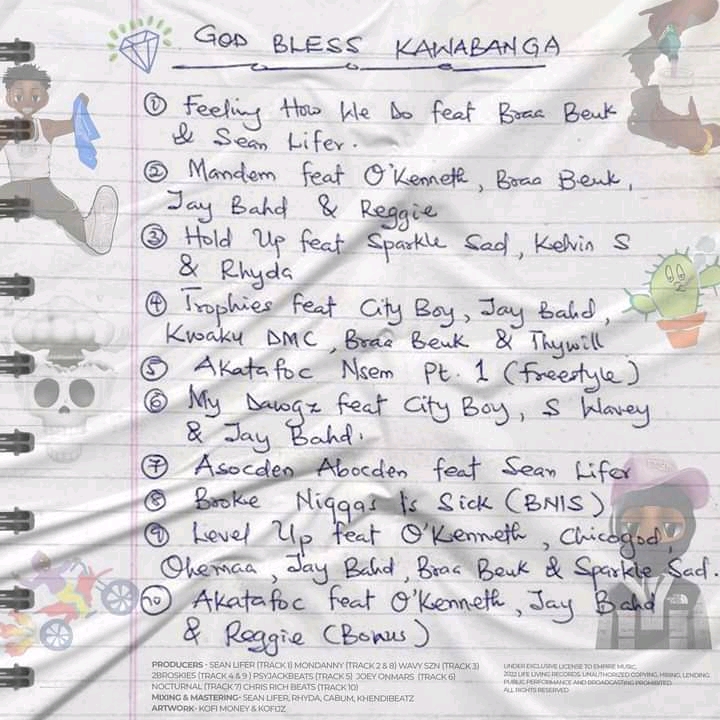 GOD BLESS KAWABANGA
① Feeling How We Do feat Braa Benk
& Sean Lifer.
② Mandem feat O'Kenneth, Braa Benk,
Jay Bahd & Reggie
③ Hold Up feat Sparkle Sad, Kelvin S
& Rhyda
④ Trophies feat City Boy, Jay Bahd,
Kwaku DMC, Braa Benk & Thywill
⑤ Akatafoc Nsem Pt. 1 (freestyle)
⑥ My Dawgz feat City Boy, S Wavey
& Jay Bahd.
⑦ Asocden Abocden feat Sean Lifer
⑧ Broke Niggas Is Sick (BNIS)
⑨ Level Up feat O'Kenneth, Chicogod,
Ohemaa, Jay Bahd, Braa Benk & Sparkle Sad.
⑩ Akatafoc feat O'Kenneth, Jay Bahd
& Reggie (Bonus)
PRODUCERS - SEAN LIFER (TRACK 1) MONDANNY (TRACK 2 & 8) WAVY SZN (TRACK 3)
2BROSKIES (TRACK 4 & 9 ) PSYJACKBEATS (TRACK 5) JOEY ONMARS (TRACK 6)
NOCTURNAL (TRACK 7) CHRIS RICH BEATS (TRACK 10)
MIXING & MASTERING- SEAN LIFER, RHYDA, CABUM, KHENDIBEATZ
ARTWORK- KOFI MONEY & KOFIJZ
UNDER EXCLUSIVE LICENSE TO EMPIRE MUSIC.
2022 LIFE LIVING RECORDS. UNAUTHORIZED COPYING, HIRING, LENDING
PUBLIC PERFORMANCE AND BROADCASTING PROHIBITED.
ALL RIGHTS RESERVED